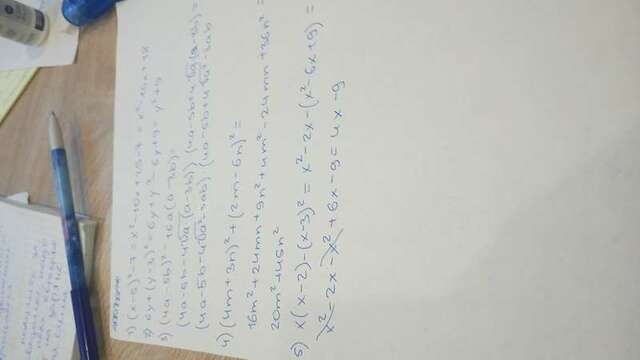 1) (x-5)²-7 = x²-10x+25-7 = x²-10x+18
2) 6y+(y-3)² = 6y+y²-6y+9 = y²+9
3) (4a-5b)² - 16a(a-3b)=
(4a-5b-4√a·(a-3b)) (4a-5b+4√a(a-3b)=
(4a-5b-4√a²-3ab) (4a-5b+4√a²-3ab
4) (4m+3n)²+(2m-6n)²=
16m²+24mn+9n²+4m²-24mn+36n² =
20m²+45n²
5) x(x-2)-(x-3)² = x²-2x-(x²-6x+9) =
x²-2x-x²+6x-9=4x-9